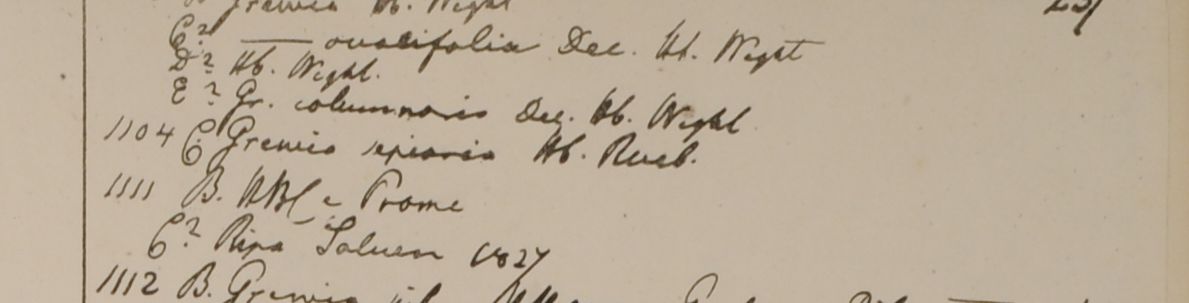 Grewia Hb. Wight 237
C? —— ovalifolia Dec. Hb. Wight
D? Hb. Wight.
E? Gr. columnaris Dec. Hb. Wight
1104 C Grewia sepiaria Hb. Roxb.
1111 B. HBC e Prome
C? Ripa Saluen 1827
1112 B. Grewia